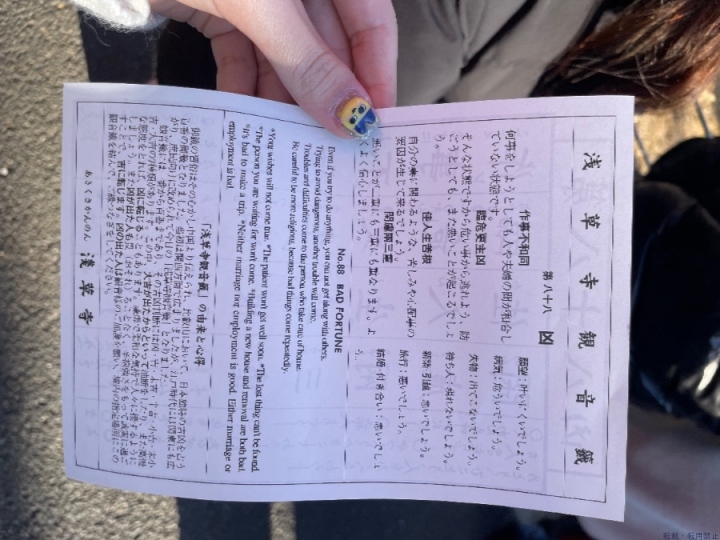 浅草寺観音籤
第八十八 凶
作事不和同
何事をしようとしても人や夫婦の間が和合し
ていない状態です。
臨危更主凶
そんな状態ですから危い事から逃れよう、防
ごうとしても、また悪いことが起こるでしょ
う。
佳人生苦惱
自分の妻に関わるような、苦しみや心配事の
要因が生じて来るでしょう。
閉慮兩三重
悪いことが二重にも三重にも重なります。よ
くよく信心しましょう。
願望：叶いにくいでしょう。
病気：危ういでしょう。
失物：出てこないでしょう。
待ち人：現れないでしょう。
新築・引越：悪いでしょう。
旅行：悪いでしょう。
結婚・付き合い：悪いでしょ
う。
No.88 BAD FORTUNE
Even if you try to do anything, you can not get along with others.
Trying to avoid dangerous, another trouble will come.
Troubles and difficulties come to the person who take care of home.
Be careful to be more religious, because bad things come repeatedly.
*Your wishes will not come true. *The patient won't get well soon. *The lost thing can't be found.
*The person you are waiting for won't come. *Building a new house and removal are both bad.
*It's bad to make a trip. *Neither marriage nor employment is good. Either marriage or
employment is bad.
「浅草寺観音籤」の由来と心得
観音様を拝んで、ご縁つなぎをしてください。
あさくさかんのん 浅草寺
転載・転用禁止